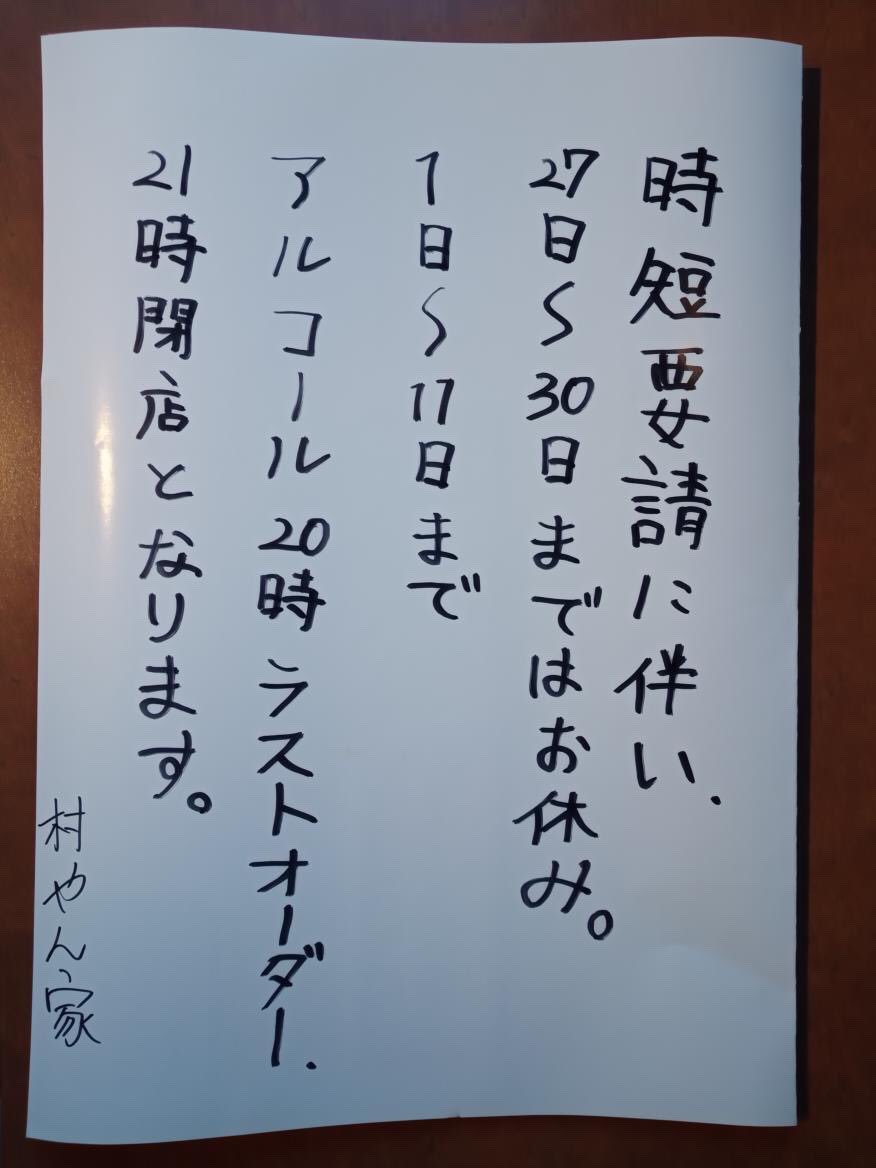 時短要請に伴い、
27日〜30日まではお休み。
1日〜11日まで
アルコール20時ラストオーダー、
21時閉店となります。
村やん家